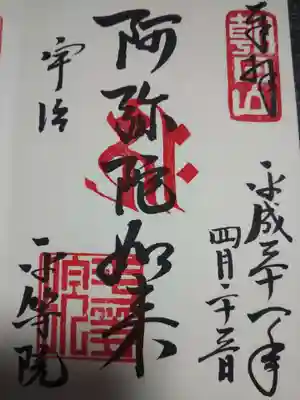 奉拝
朝日山
平成三十一年
四月二十三日
阿弥陀如来
宇治
平等院